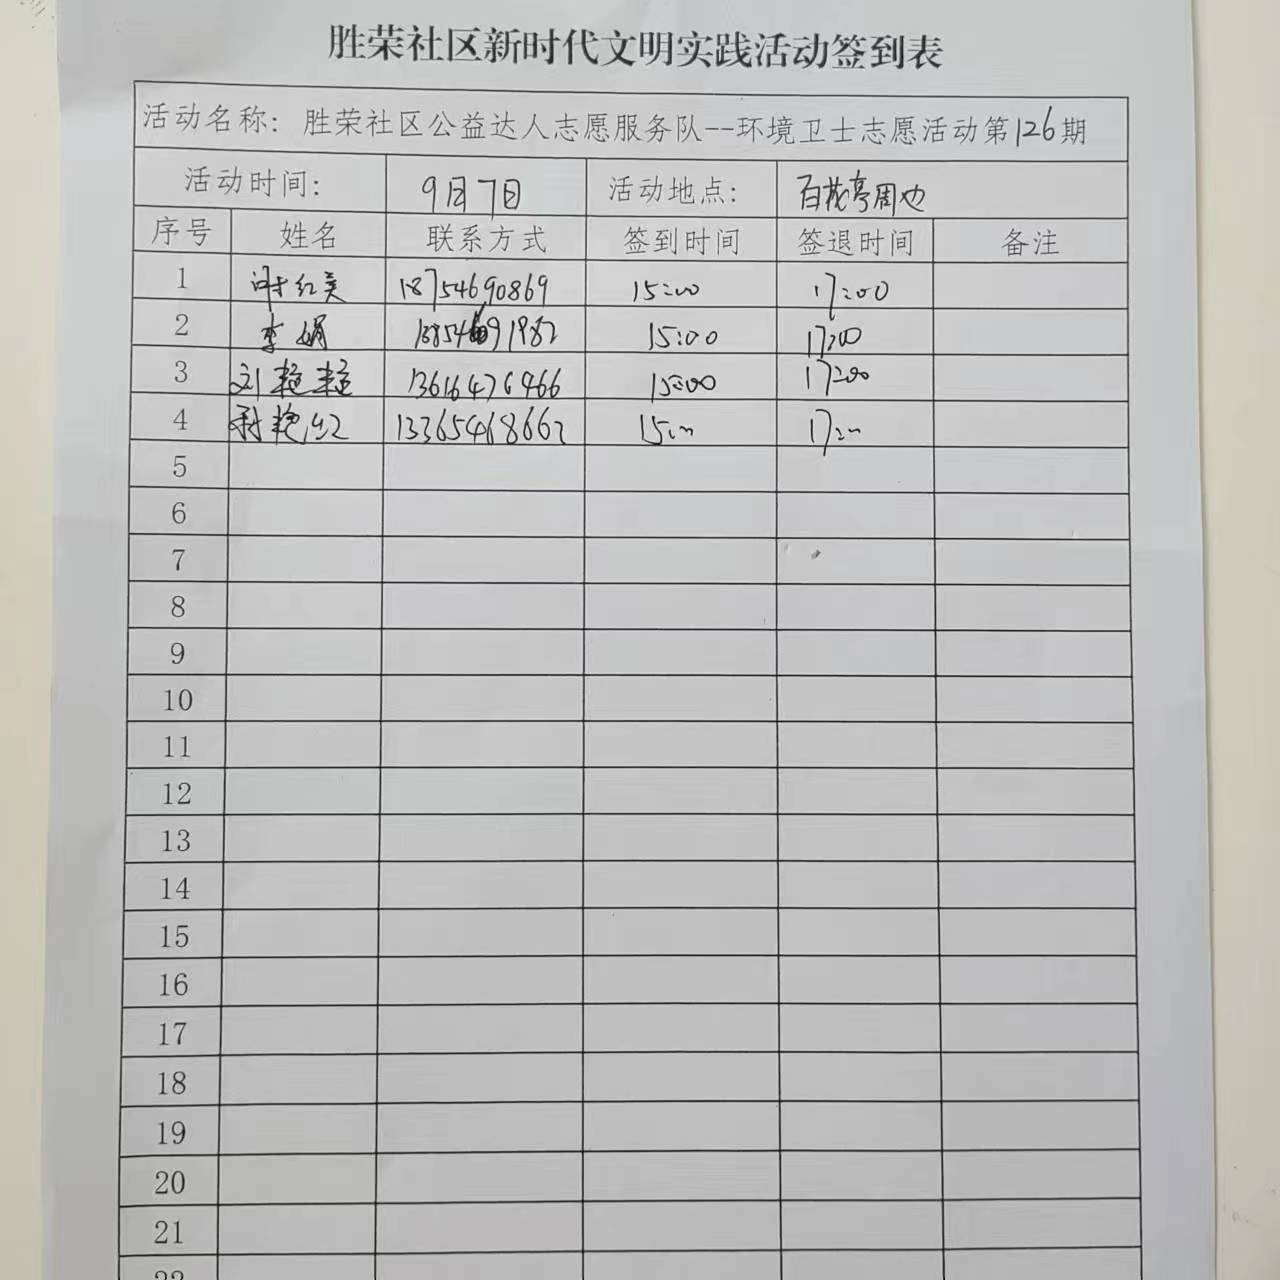 胜荣社区新时代文明实践活动签到表
活动名称：胜荣社区公益达人志愿服务队--环境卫士志愿活动第126期
活动时间： 9月7日 活动地点： 百花亭周边
序号 姓名 联系方式 签到时间 签退时间 备注
1 红美 18754690869 15:00 17:00
2 李娟 15:00 17:00
3 刘艳艳 13616476966 15:00 17:00
4 艳红 13365468662 15:00 17:00
5
6
7
8
9
10
11
12
13
14
15
16
17
18
19
20
21
22